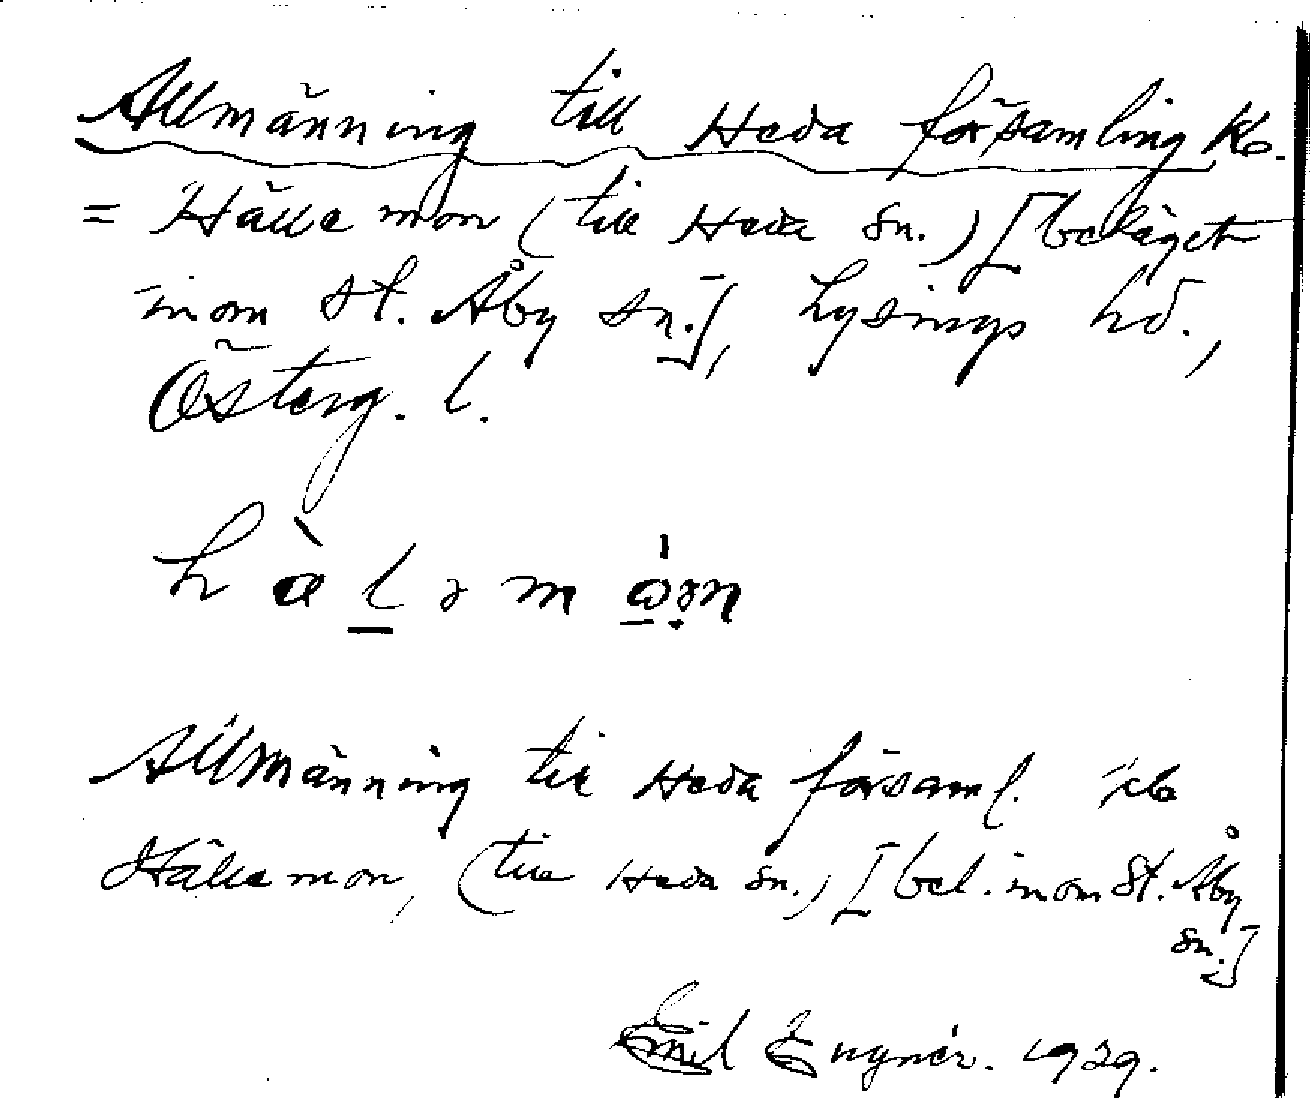 Allmänning till Heda församling Kb.
= Hälle mon (till Heda sn.) [beläget
inom St. Åby sn.], Lysings hd.,
Österg. l.
Allmänning till Heda församl. Kb
Hälle mon, (till Heda sn.) [bel. inom St. Åby
sn.]
Emil Engnér. 1929.